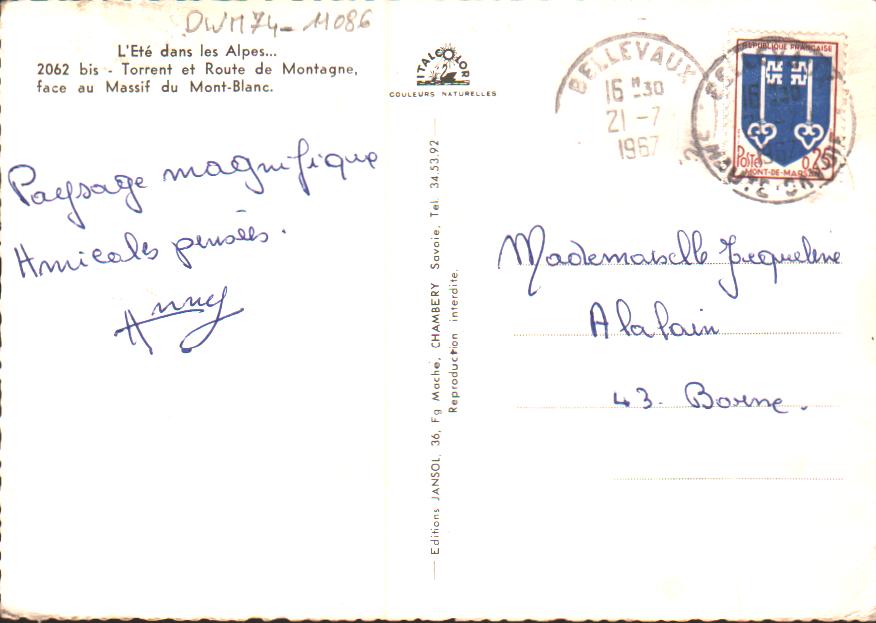 DWM74-11086
L'Eté dans les Alpes...
2062 bis - Torrent et Route de Montagne,
face au Massif du Mont-Blanc.
ITALCOLOR
COULEURS NATURELLES
Paysage magnifique
Amicales pensées.
Anny
Editions JANSOL, 36, Fg Mache, CHAMBERY Savoie, Tel. 34.53.92
Reproduction interdite.
BELLEVAUX
16 H 30
21 - 7
1967
REPUBLIQUE FRANÇAISE
POSTES 0,25
MONT-DE-MARSAN
BELLEVAUX
16 H 30
1967
HTE-SAVOIE
Mademoiselle Jacqueline
Alalain
43. Borne.